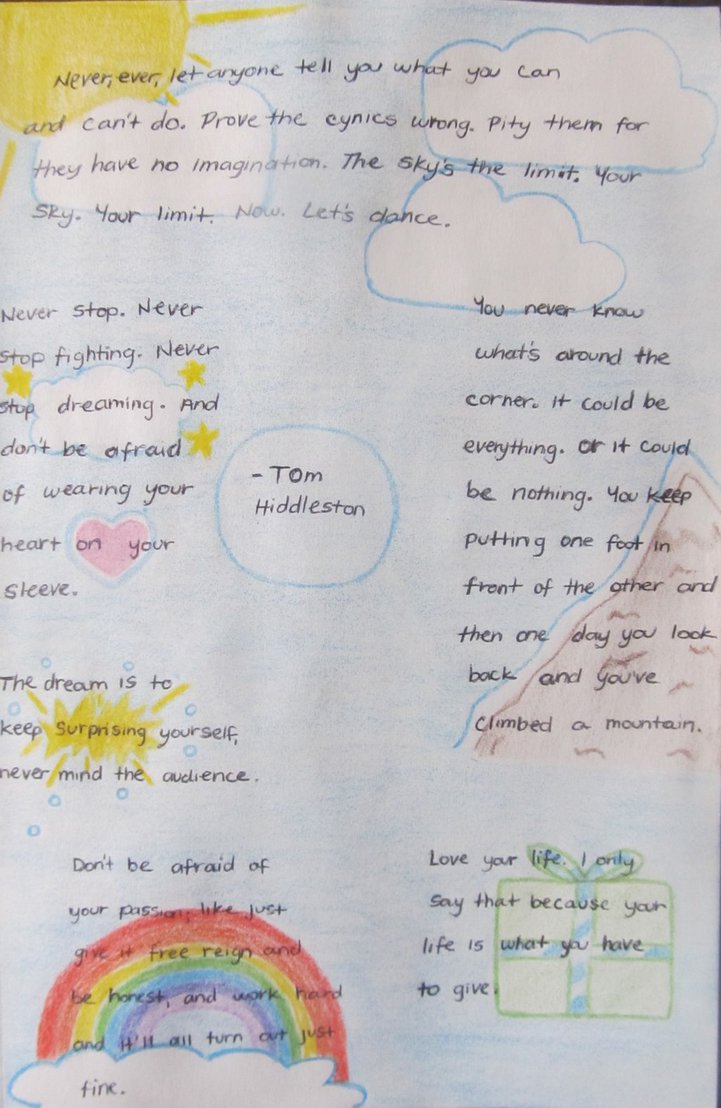 Never, ever, let anyone tell you what you can
and can't do. Prove the cynics wrong. Pity them for
they have no imagination. The sky's the limit. Your
sky. Your limit. Now. Let's dance.
Never stop. Never
stop fighting. Never
stop dreaming. And
don't be afraid
of wearing your
heart on your
sleeve.
- Tom
Hiddleston
You never know
what's around the
corner. It could be
everything. or it could
be nothing. You keep
putting one foot in
front of the other and
then one day you look
back and you've
climbed a mountain.
The dream is to
keep surprising yourself,
never mind the audience.
Don't be afraid of
your passion, like just
give it free reign and
be honest, and work hard
and it'll all turn out just
fine.
Love your life. I only
say that because your
life is what you have
to give.